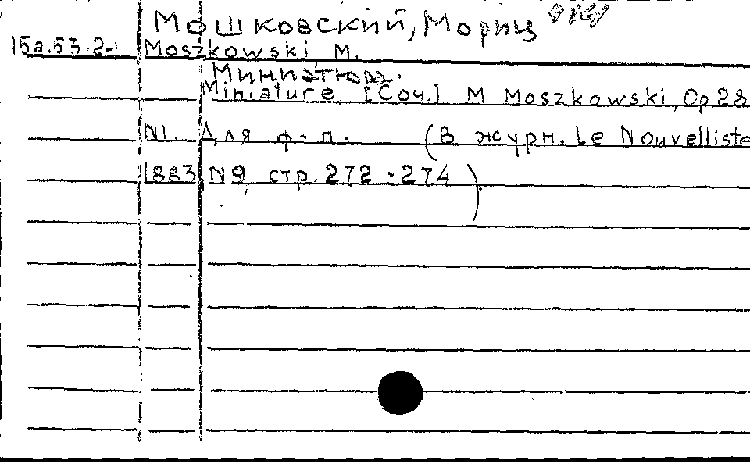 Мошковский, Мориц
15а.53.2-1 Moszkowski M.
Миниатюра.
Miniature. [Соч.] M Moszkowski, Op 28
N1. Для ф-п. (В журн. Le Nouvelliste
1883 N9, стр. 272-274)